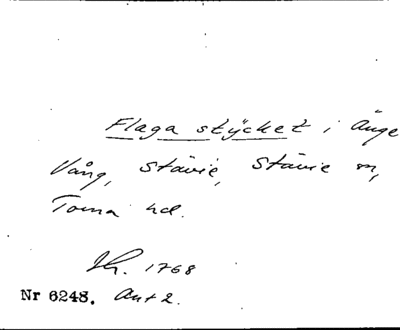 Flaga stycket i Änge
Vång, Stävie, Stävie sn,
Torna hd.
1768
Nr 6248. Akt 2.